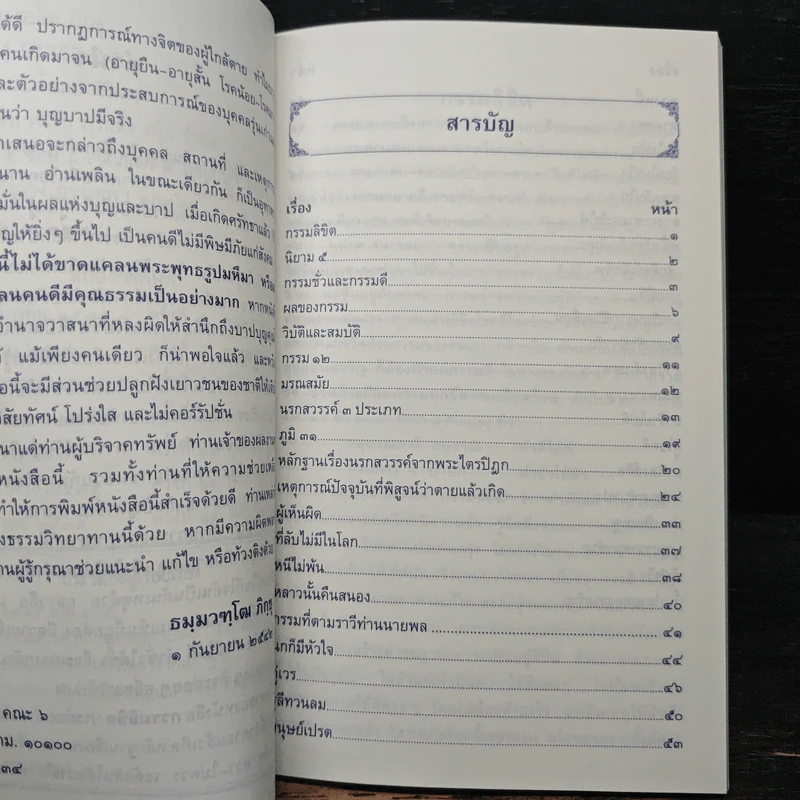 ได้ดี ปรากฏการณ์ทางจิตของผู้ใกล้ตาย
คนเกิดมาจน (อายุยืน-อายุสั้น โรคน้อย-
ละตัวอย่างจากประสบการณ์ของบุคคลรุ่น
นว่า บุญบาปมีจริง
าเสนอจะกล่าวถึงบุคคล สถานที่ และ
นาน อ่านเพลิน ในขณะเดียวกัน ก็เป็น
มั่นในผลแห่งบุญและบาป เมื่อเกิดศรัทธาแล้ว
ญให้ยิ่งๆ ขึ้นไป เป็นคนดีไม่มีพิษมีภัยแก่สังคม
นี้ไม่ได้ขาดแคลนพระพุทธรูปมหึมา
ลนคนดีมีคุณธรรมเป็นอย่างมาก
อำนาจวาสนาที่หลงผิดให้สำนึกถึงบาปบุญ
แม้เพียงคนเดียว ก็น่าพอใจแล้ว
อนี้จะมีส่วนช่วยปลูกฝังเยาวชนของชาติ
สัยทัศน์ โปร่งใส และไม่คอร์รัปชั่น
นาแด่ท่านผู้บริจาคทรัพย์ ท่านเจ้าของ
หนังสือนี้ รวมทั้งท่านที่ให้ความช่วย
ทำให้การพิมพ์หนังสือนี้สำเร็จด้วยดี
งธรรมวิทยาทานนี้ด้วย หากมีความ
านผู้รู้กรุณาช่วยแนะนำ แก้ไข หรือท้วงติง
ธมฺมวฑฺโฒ ภิกขุ
๑ กันยายน ๒๕๔๒
คณะ ๖
ทม. ๑๐๑๐๐
๓๔
สารบัญ
เรื่อง หน้า
กรรมลิขิต ๑
นิยาม ๕ ๒
กรรมชั่วและกรรมดี ๓
ผลของกรรม ๖
วิบัติและสมบัติ ๙
กรรม ๑๒ ๑๑
มรณสมัย ๑๒
นรกสวรรค์ ๓ ประเภท ๑๓
ภูมิ ๓๑ ๑๙
หลักฐานเรื่องนรกสวรรค์จากพระไตรปิฎก ๒๐
เหตุการณ์ปัจจุบันที่พิสูจน์ว่าตายแล้วเกิด ๒๔
ผู้เห็นผิด ๓๓
ที่ลับไม่มีในโลก ๓๗
หนีไม่พ้น ๓๘
หลาวนั้นคืนสนอง ๔๐
กรรมที่ตามราวีท่านนายพล ๔๑
นกก็มีหัวใจ ๔๔
คู่เวร ๔๖
ลีทวนลม ๕๐
มนุษย์เปรต ๕๓